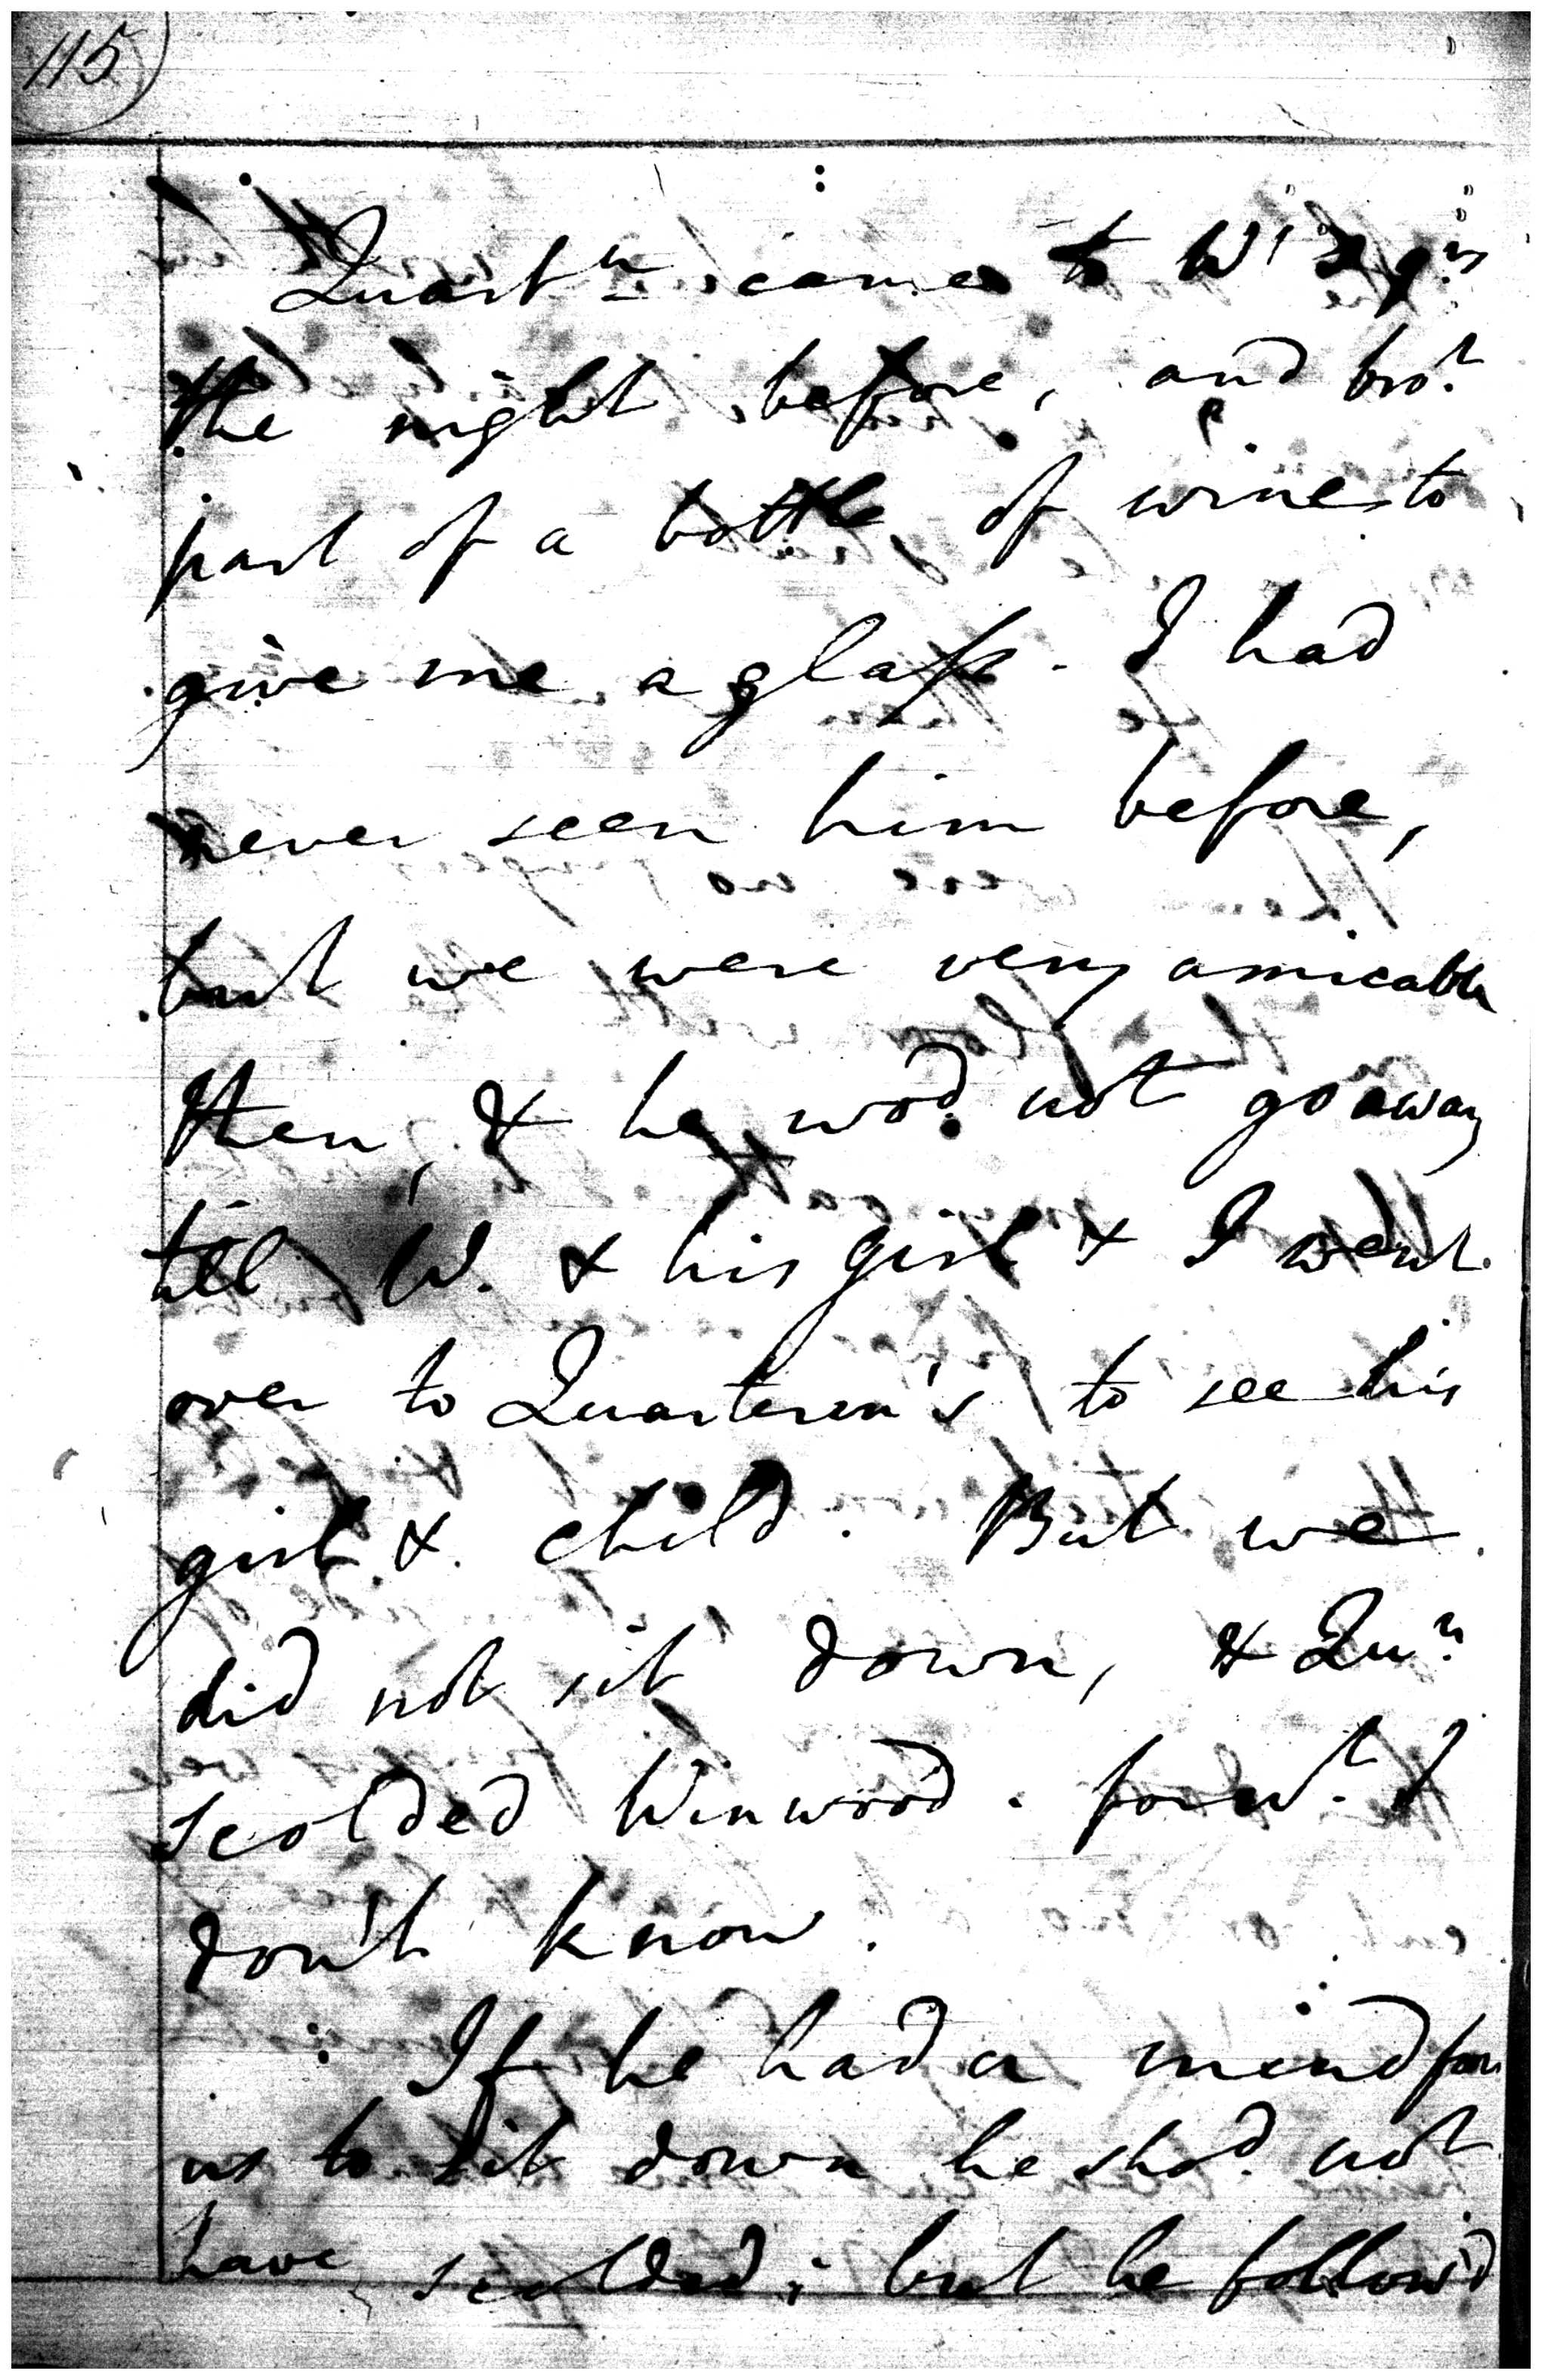 115
Quart.n came to
the night before, and bro.t
part of a bottle of wine to
give me a glass. I had
never seen him before,
but we were very amicable
then, & he wod. not go away
till W. & his girl & I went
over to Quarteren's to see his
girl & child. But we
did not sit down, & Qu.n
scolded Winwood. for w.t I
don't know.
If he had a mind for
us to sit down he shod. not
have scolded; but he follow'd